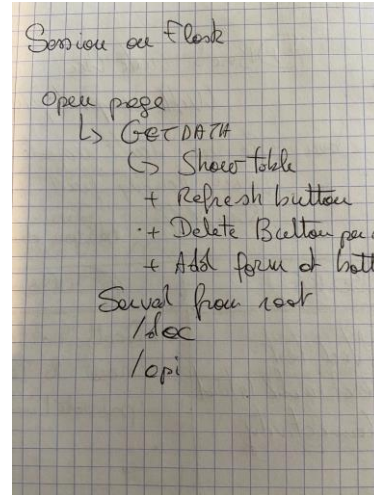 Session on Flask
Open page
↳ GET DATA
↳ Show table
+ Refresh button
+ Delete Button per
+ Add form at bott
Served from root
/doc
/api